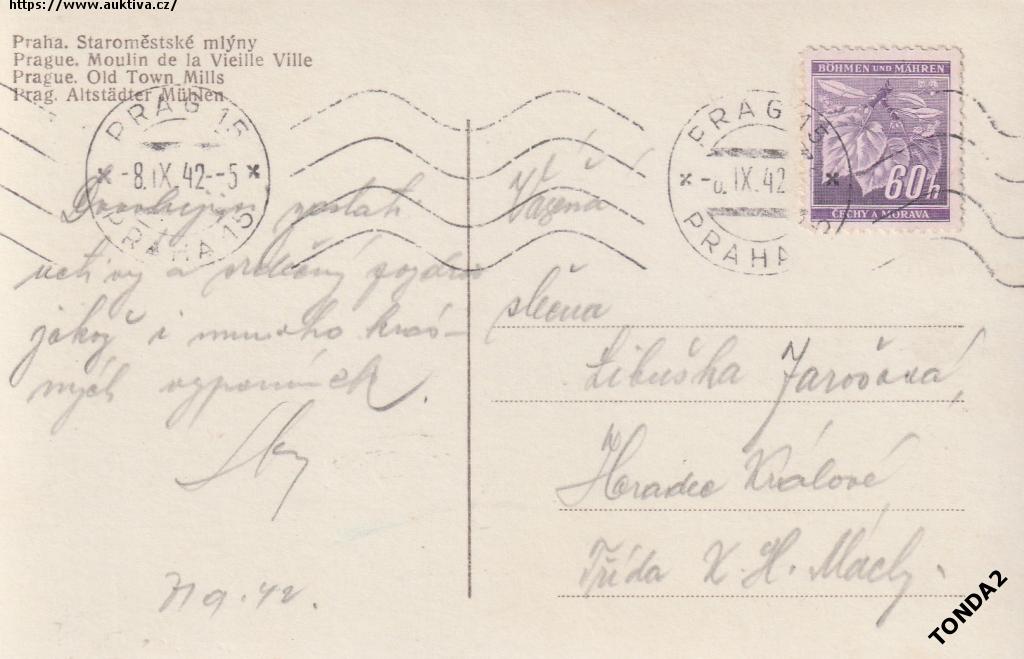 https://www.auktiva.cz/
Praha. Staroměstské mlýny
Prague. Moulin de la Vieille Ville
Prague. Old Town Mills
Prag. Altstädter Mühlen
PRAG 15
-8.IX.42--5
PRAHA 15
PRAG 15
IX.42
PRAHA
BÖHMEN UND MÄHREN
60h
ČECHY A MORAVA
uctivý a srdečný pozdrav
jakož i mnoho krás-
ných vzpomínek.
7/9.42.
Vážená
slečna
Libuška
Hradec Králové
Třída K. H. Máchy.
TONDA2